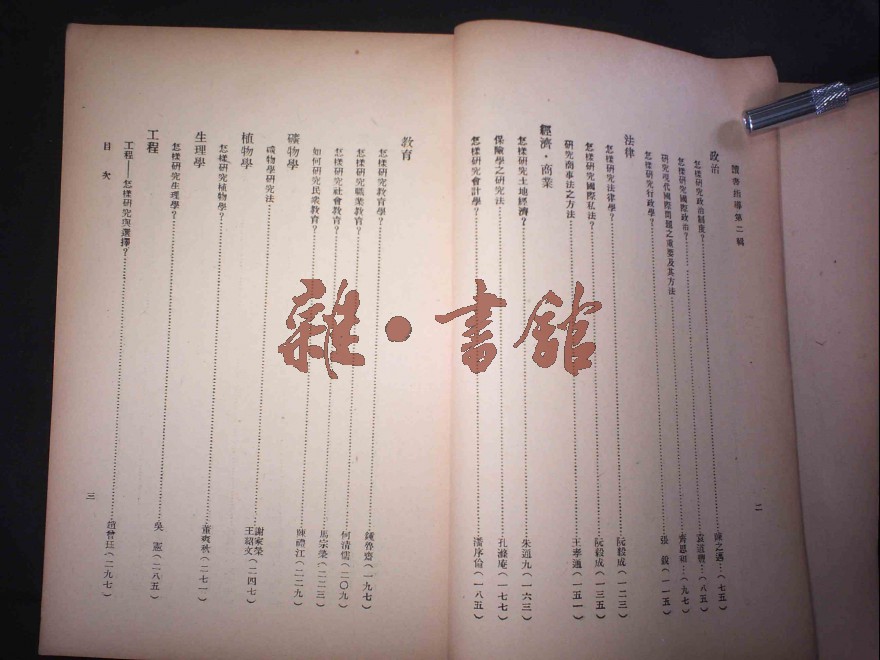 讀書指導第二輯
二
政治
怎樣研究政治制度？…………陳之邁…（七五）
怎樣研究國際政治？…………齊思和…（九七）
研究現代國際問題之重要及其方法…………袁道豐…（八五）
怎樣研究行政學？…………張銳（一一五）
法律
怎樣研究法律學？…………阮毅成（一二三）
怎樣研究國際私法？…………阮毅成（一三五）
研究商事法之方法…………王孝通（一五一）
經濟・商業
怎樣研究土地經濟？…………朱通九（一六三）
保險學之研究法…………孔滌庵（一七七）
怎樣研究會計學？…………潘序倫（一八五）
教育
怎樣研究教育學？…………鍾魯齋（一九七）
怎樣研究職業教育？…………何清儒（二〇九）
怎樣研究社會教育？…………馬宗榮（二二三）
如何研究民衆教育？…………陳禮江（二二九）
礦物學
礦物學研究法…………謝家榮 王紹文（二四七）
植物學
怎樣研究植物學？…………董爽秋（二七一）
生理學
怎樣研究生理學？…………吳憲（二八五）
工程
工程——怎樣研究與選擇？…………趙曾珏（二九七）
目次
三
雜・書館